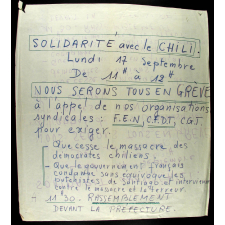 SOLIDARITÉ avec le CHILI.
Lundi 17 Septembre
De 11H à 12H
NOUS SERONS TOUS EN GRÈVE
à l'appel de nos organisations
syndicales : F.E.N, CFDT, CGT
pour exiger.
- Que cesse le massacre des
démocrates chiliens.
- Que le gouvernement français
condamne sans équivoque les
putschistes de Santiago et intervienne
contre le massacre et la terreur.
- 11H30. RASSEMBLEMENT
DEVANT LA PRÉFECTURE.